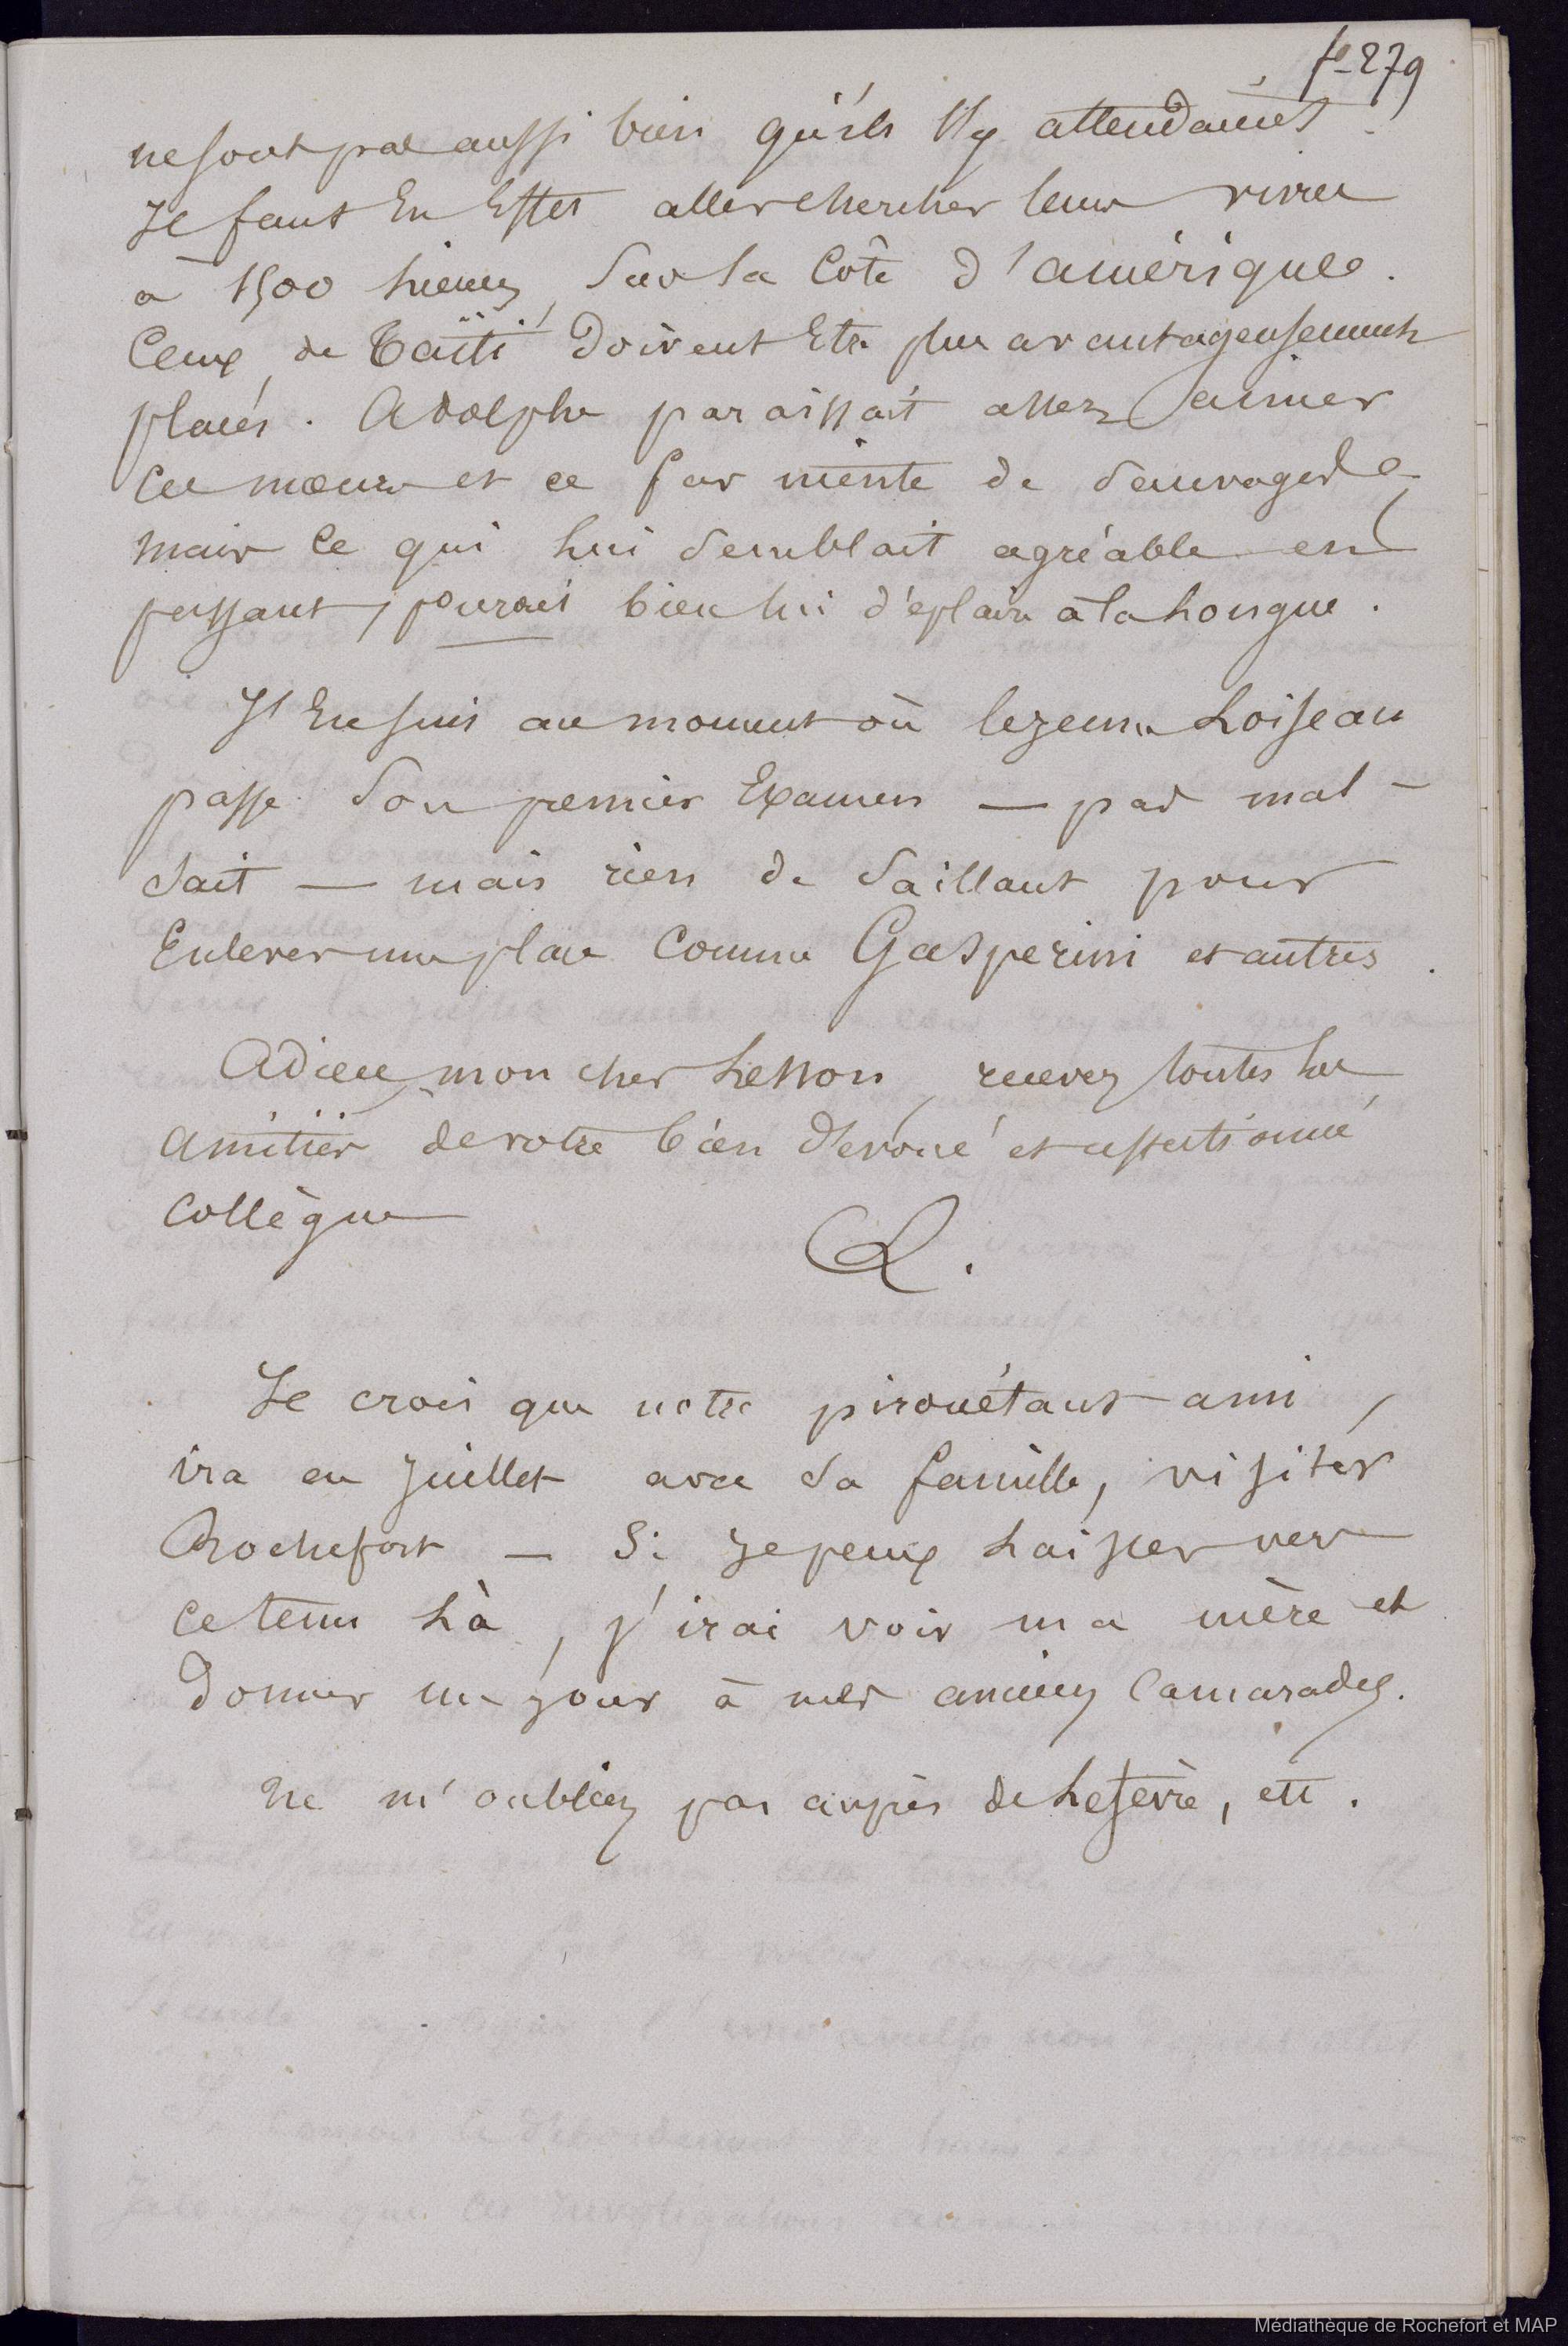 fo-279
ne sont pas aussi bien qu'ils s'y attendaient
Il faut En Effet aller chercher leurs vivres
à 1500 lieues, sur la Côte d'amérique.
Ceux de Taïti doivent Etre plus avantageusement
placés. Adolphe paraissait assez aimer
ces mœurs et ce far niente de sauvages
mais ce qui lui semblait agréable en
passant, pourait bien lui déplaire à la longue.
J'En suis au moment où le jeune Loiseau
passe son premier Examen — pas mal -
sait — mais rien de saillant pour
Enlever une place comme Gasperini et autres.
Adieu mon cher Lesson, recevez toutes les
amitiés de votre bien dévoué et affectionné
collègue
L.
Je crois que notre pirouétant ami,
ira en Juillet avec sa famille, visiter
Rochefort — Si je peux Laisser vers
ce tems là, j'irai voir ma mère et
donner un jour à mes anciens Camarades.
Ne m'oubliez pas auprès de Lefèvre, etc.
Médiathèque de Rochefort et MAP